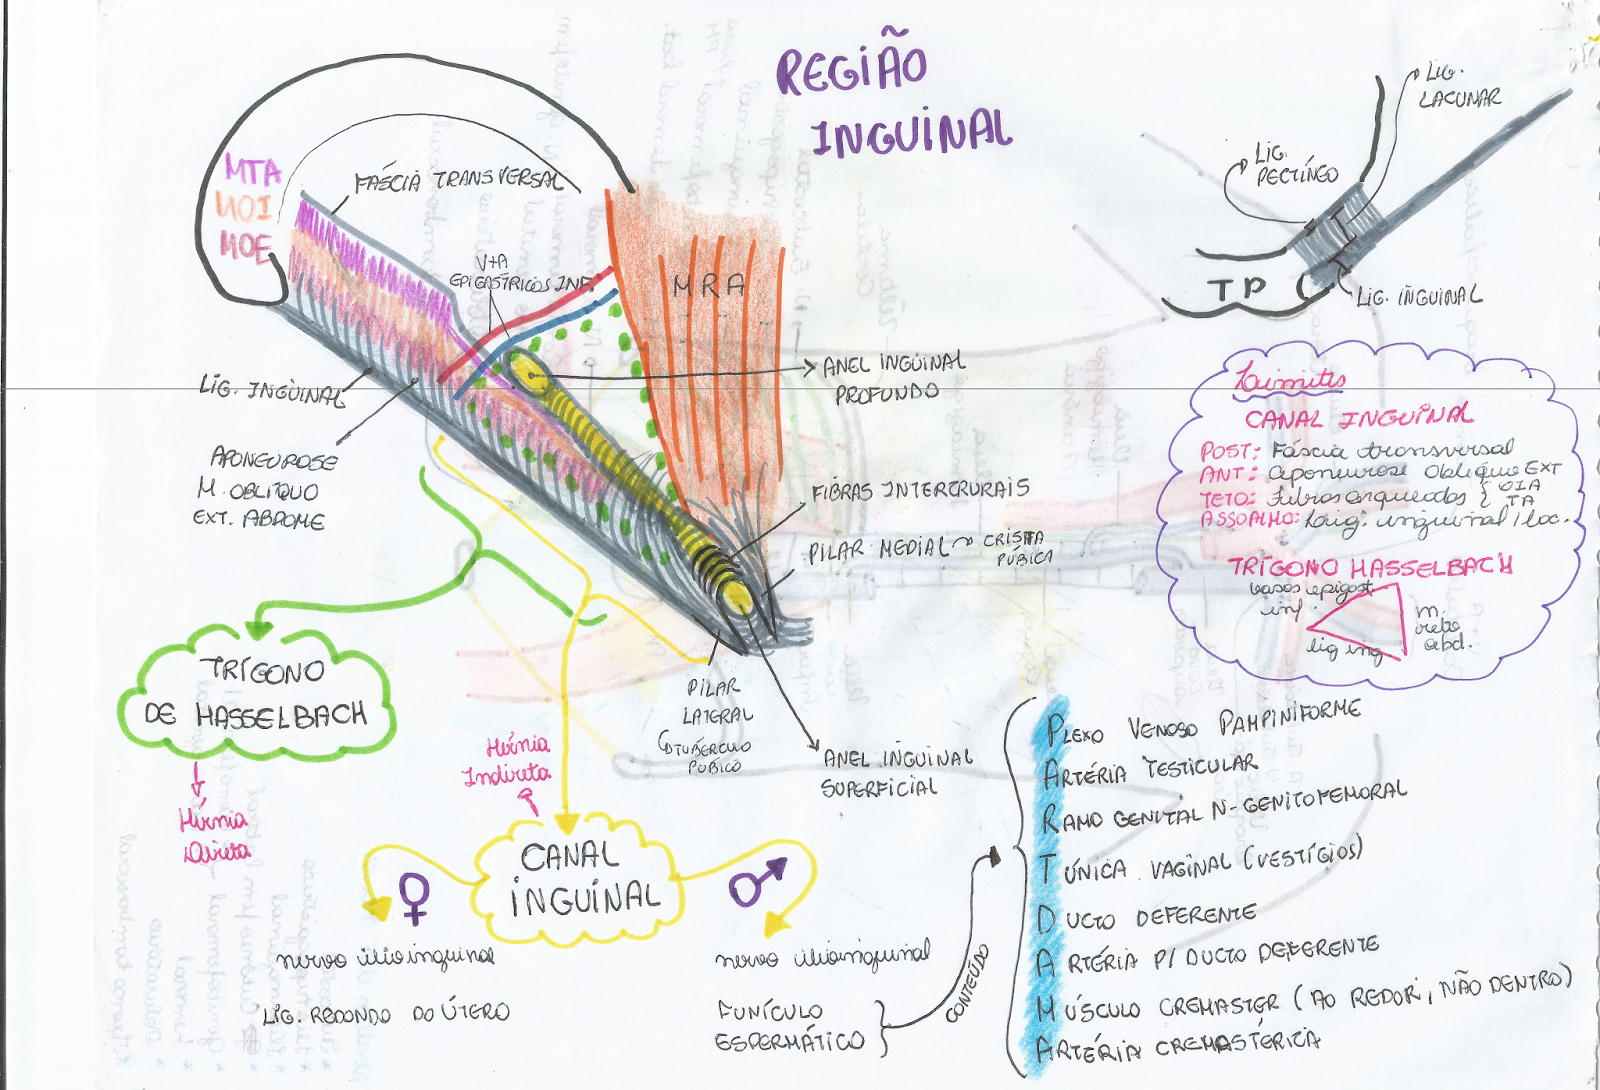 REGIÃO
INGUINAL
MTA
MOI
MOE
FÁSCIA TRANSVERSAL
V+A
EPIGÁSTRICOS INF.
MRA
LIG. INGUINAL
APONEUROSE
M. OBLIQUO
EXT. ABDOME
ANEL INGUINAL
PROFUNDO
FIBRAS INTERCRURAIS
PILAR MEDIAL → CRISTA
PÚBICA
PILAR
LATERAL
TUBÉRCULO
PÚBICO
ANEL INGUINAL
SUPERFICIAL
LIG.
LACUNAR
LIG.
PECTÍNEO
TP
LIG. INGUINAL
Limites
CANAL INGUINAL
POST: Fáscia transversal
ANT: aponeurose Obliquo EXT
TETO: Fibras arqueadas { OIA
TA
ASSOALHO: Lig. inguinal / lac.
TRÍGONO HASSELBACH
vasos epigast
inf
m.
reto
abd.
lig ing
TRÍGONO
DE HASSELBACH
Hérnia
Direta
Hérnia
Indireta
CANAL
INGUINAL
♀
♂
nervo ilioinguinal
LIG. REDONDO DO ÚTERO
nervo ilioinguinal
FUNÍCULO
ESPERMÁTICO
CONTEÚDO
PLEXO VENOSO PAMPINIFORME
ARTÉRIA TESTICULAR
RAMO GENITAL N-GENITOFEMORAL
TÚNICA VAGINAL (VESTÍGIOS)
DUCTO DEFERENTE
ARTÉRIA P/ DUCTO DEFERENTE
MÚSCULO CREMASTER (AO REDOR, NÃO DENTRO)
ARTÉRIA CREMASTÉRICA